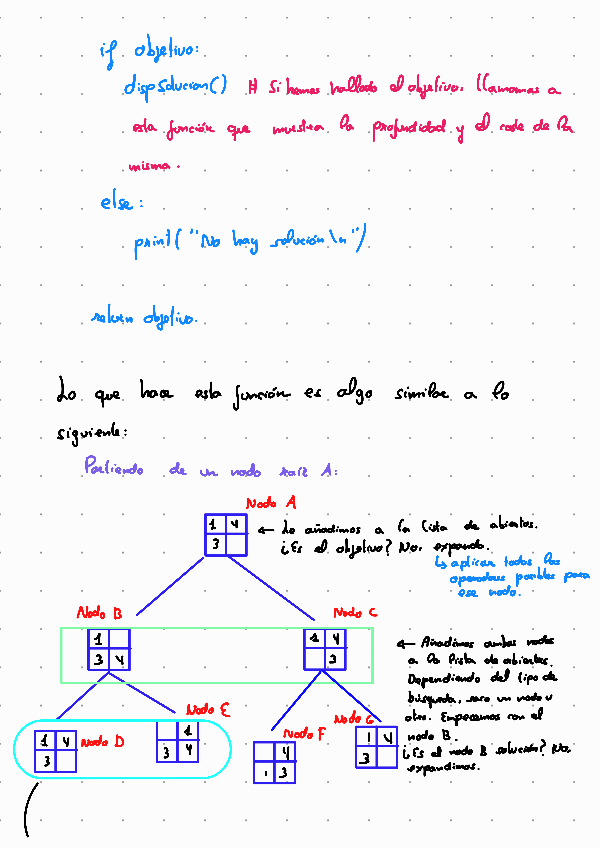 if objetivo:
dispSolucion() # Si hemos hallado el objetivo. Llamamos a
esta función que muestra la profundidad y el coste de la
misma.
else:
print("No hay solución\n")
return objetivo.
Lo que hace esta función es algo similar a lo
siguiente:
Partiendo de un nodo raíz A:
Nodo A
1 4
3
← Lo añadimos a la lista de abiertos.
¿Es el objetivo? No, expando.
↳ aplicar todos los
operadores posibles para
ese nodo.
Nodo B
Nodo C
1
3 4
1 4
3
← Añadimos ambos nodos
a la lista de abiertos.
Dependiendo del tipo de
búsqueda, saco un nodo u
otro. Empezamos con el
nodo B.
¿Es el nodo B solución? No,
expandimos.
Nodo D
1 4
3
Nodo E
1
3 4
Nodo F
4
1 3
Nodo G
1 4
3